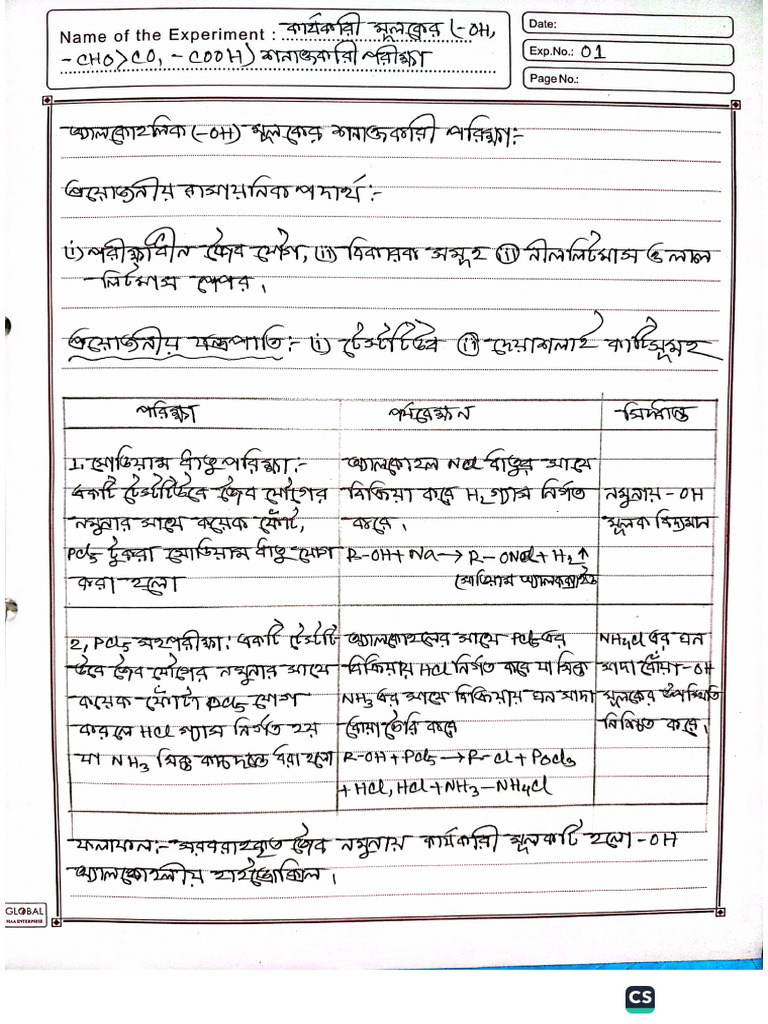 Name of the Experiment : কার্যকারী মূলকের (-OH,
- CHO>CO, -COOH) শনাক্তকারী পরীক্ষা
Date:
Exp.No.: 01
Page No.:
অ্যালকোহলিক (-OH) মূলকের শনাক্তকারী পরিক্ষা:-
প্রয়োজনীয় রাসায়নিক পদার্থ:-
(i) পরীক্ষাধীন জৈব যৌগ, (ii) বিকারক সমূহ (iii) নীললিটমাস ও লাল
লিটমাস পেপার।
প্রয়োজনীয় যন্ত্রপাতি:- (i) টেস্টটিউব (ii) দেয়াশলাই কাঠিসমূহ
পরিক্ষা পর্যবেক্ষন সিদ্ধান্ত
1. সোডিয়াম ধাতু পরিক্ষা:-
একটি টেস্টটিউবে জৈব যৌগের
নমুনার সাথে কয়েক ফোঁটা,
PCl5 টুকরা সোডিয়াম ধাতু যোগ
করা হলো
অ্যালকোহল Na ধাতুর সাথে
বিক্রিয়া করে H2 গ্যাস নির্গত
করে।
R-OH + Na → R-ONa + H2↑
সোডিয়াম অ্যালকক্সাইড
নমুনায় -OH
মূলক বিদ্যমান
2, PCl5 সহ পরীক্ষা: একটি টেস্টটি
উবে জৈব যৌগের নমুনার সাথে
কয়েক ফোঁটা PCl5 যোগ
করলে HCl গ্যাস নির্গত হয়
যা NH3 সিক্ত কাচদন্ডে ধরা হলো
অ্যালকোহলের সাথে PCl5 এর
বিক্রিয়ায় HCl নির্গত করে যা সিক্ত
NH3 এর সাথে বিক্রিয়ায় ঘন সাদা
ধোয়া তৈরি করে
R-OH + PCl5 → R-Cl + POCl3
+ HCl, HCl + NH3 — NH4Cl
NH4Cl এর ঘন
সাদা ধোঁয়া -OH
মূলকের উপস্থিতি
নিশ্চিত করে।
ফলাফল:- সরবরাহকৃত জৈব নমুনায় কার্যকারী মূলকটি হলো -OH
অ্যালকোহলীয় হাইড্রোক্সিল।
GLOBAL
MAA ENTERPRISE
CS